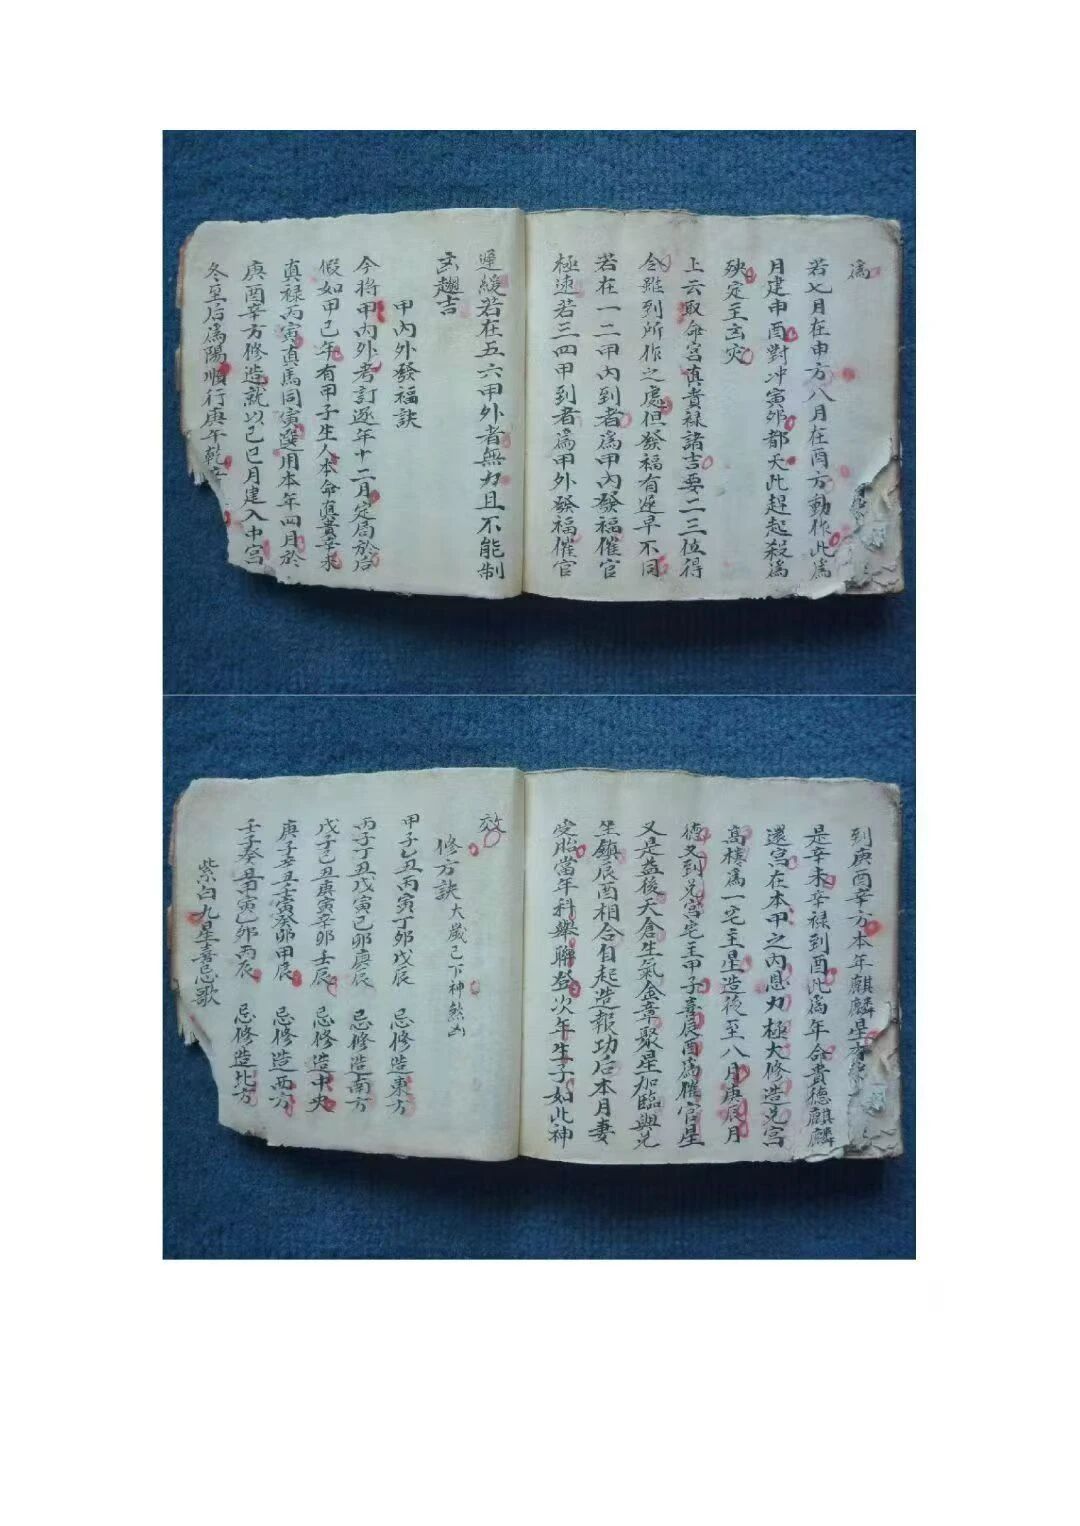 為
若七月在申方八月在酉方動作此為
月建申酉對冲寅夘都天此趕起殺為
殃定主玄灾
上六取命宮真貴禄諸吉要二三位得
合雖到所作之處但發福有遲早不同
若在一二甲内到者為甲内發福催官
極速若三四甲到者為甲外發福催官
遲緩若在五六甲外者無力且不能制
玄趨吉
甲内外發福訣
今將甲内外考訂逐年十二月定局於后
假如甲己年有甲子生人本命真貴辛未
真禄丙寅真馬同寅選用本年四月於
庚酉辛方修造就以己巳月建入中宮
冬至后為陽順行庚午乾辛
到庚酉辛方本年麒麟星
是辛未辛禄到酉此為年命貴德麒麟
還宮在本甲之内恩力極大修造兑宮
高樓為一宅主星造後至八月庚辰月
德又到兑宮宅主甲子喜辰酉為催官星
又是益後天倉生氣金章聚星加臨與兑
坐鎮辰酉相合自起造報功后本月妻
受胎當年科舉聯登次年生子如此神
效
修方訣 大歲己下神煞凶
甲子乙丑丙寅丁夘戊辰 忌修造東方
丙子丁丑戊寅己卯庚辰 忌修造南方
戊子己丑庚寅辛卯壬辰 忌修造中央
庚子辛丑壬寅癸卯甲辰 忌修造西方
壬子癸丑甲寅乙夘丙辰 忌修造北方
紫白九星喜忌歌